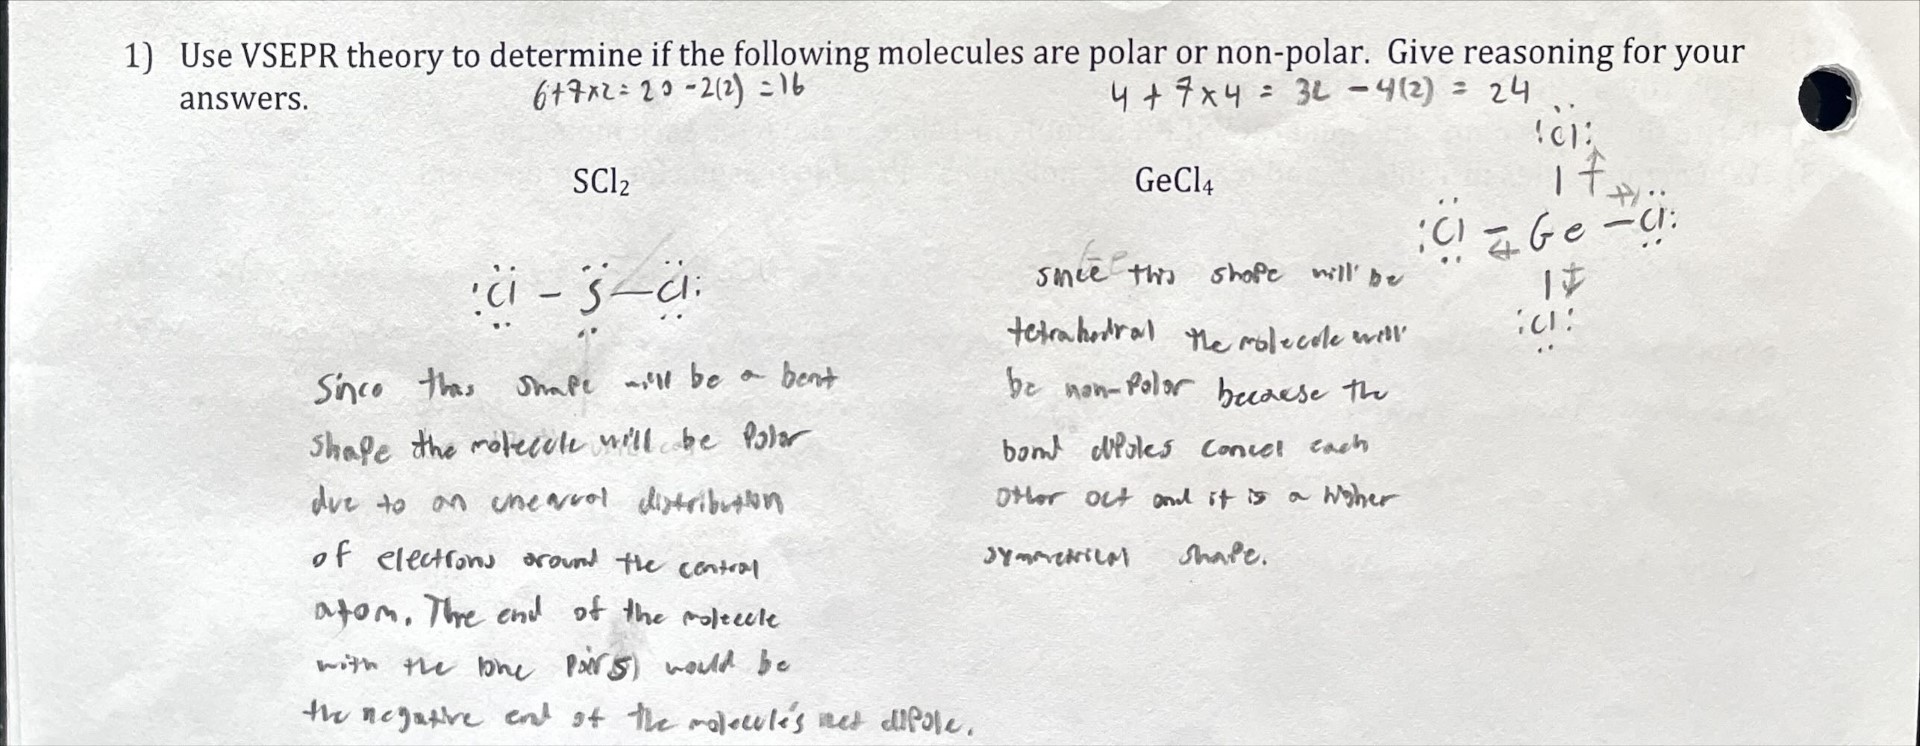 1) Use VSEPR theory to determine if the following molecules are polar or non-polar. Give reasoning for your
answers.
6+7x2= 20 -2(2) = 16
4 + 7x4 = 32 - 4(2) = 24
SCl₂
GeCl₄
:Cl:
:Cl - Ge - Cl:
:Cl:
:Cl - S - Cl:
Since this shape will be a bent
shape the molecule will be Polar
due to an unequal distribution
of electrons around the central
atom. The end of the molecule
with the lone pair(s) would be
the negative end of the molecule's net dipole.
since this shape will be
tetrahedral the molecule will
be non-Polar because the
bond dipoles cancel each
other out and it is a higher
symmetrical shape.